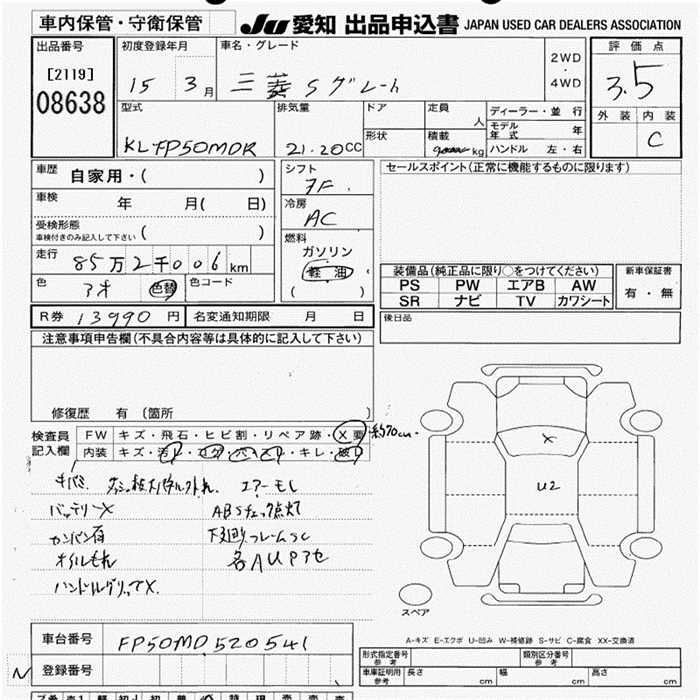 車内保管・守衛保管
JU 愛知 出品申込書 JAPAN USED CAR DEALERS ASSOCIATION
出品番号
[2119]
08638
初度登録年月
15 3月
車名・グレード
三菱 Sグレート
2WD
・
4WD
評価点
3.5
外装 内装
C
型式
KL-FP50MDR
排気量
21.20CC
ドア
形状
定員
人
積載
kg
ディーラー・並行
モデル年式 年
ハンドル 左・右
車歴
自家用・( )
車検
年 月( 日)
受検形態
車検付きのみ記入して下さい ( )
走行
85万2千006km
色
アオ 色替
色コード
シフト
7F
冷房
AC
燃料
ガソリン
軽油
( )
セールスポイント(正常に機能するものに限ります)
装備品(純正品に限り○をつけてください)
PS PW エアB AW
SR ナビ TV カワシート
新車保証書
有・無
R券 13990円
名変通知期限 月 日
後日品
注意事項申告欄(不具合内容等は具体的に記入して下さい)
修復歴 有(箇所 )
検査員記入欄
FW キズ・飛石・ヒビ割・リペア跡・X要 約70cm
内装 キズ・汚レ・コゲ・穴・スレ・キレ・破レ
キバミ
エアーモレ
バッテリーX
ABSチェック点灯
カンバン有
下廻りフレームSC
オイルもれ
各AUPアセ
ハンドルグリップX.
X
U2
スペア
A-キズ E-エクボ U-凹み W-補修跡 S-サビ C-腐食 XX-交換済
車台番号
FP50MD520541
登録番号
N
形式指定番号
参考
類別区分番号
参考
車庫証明用
参考
長さ cm
幅 cm
高さ cm